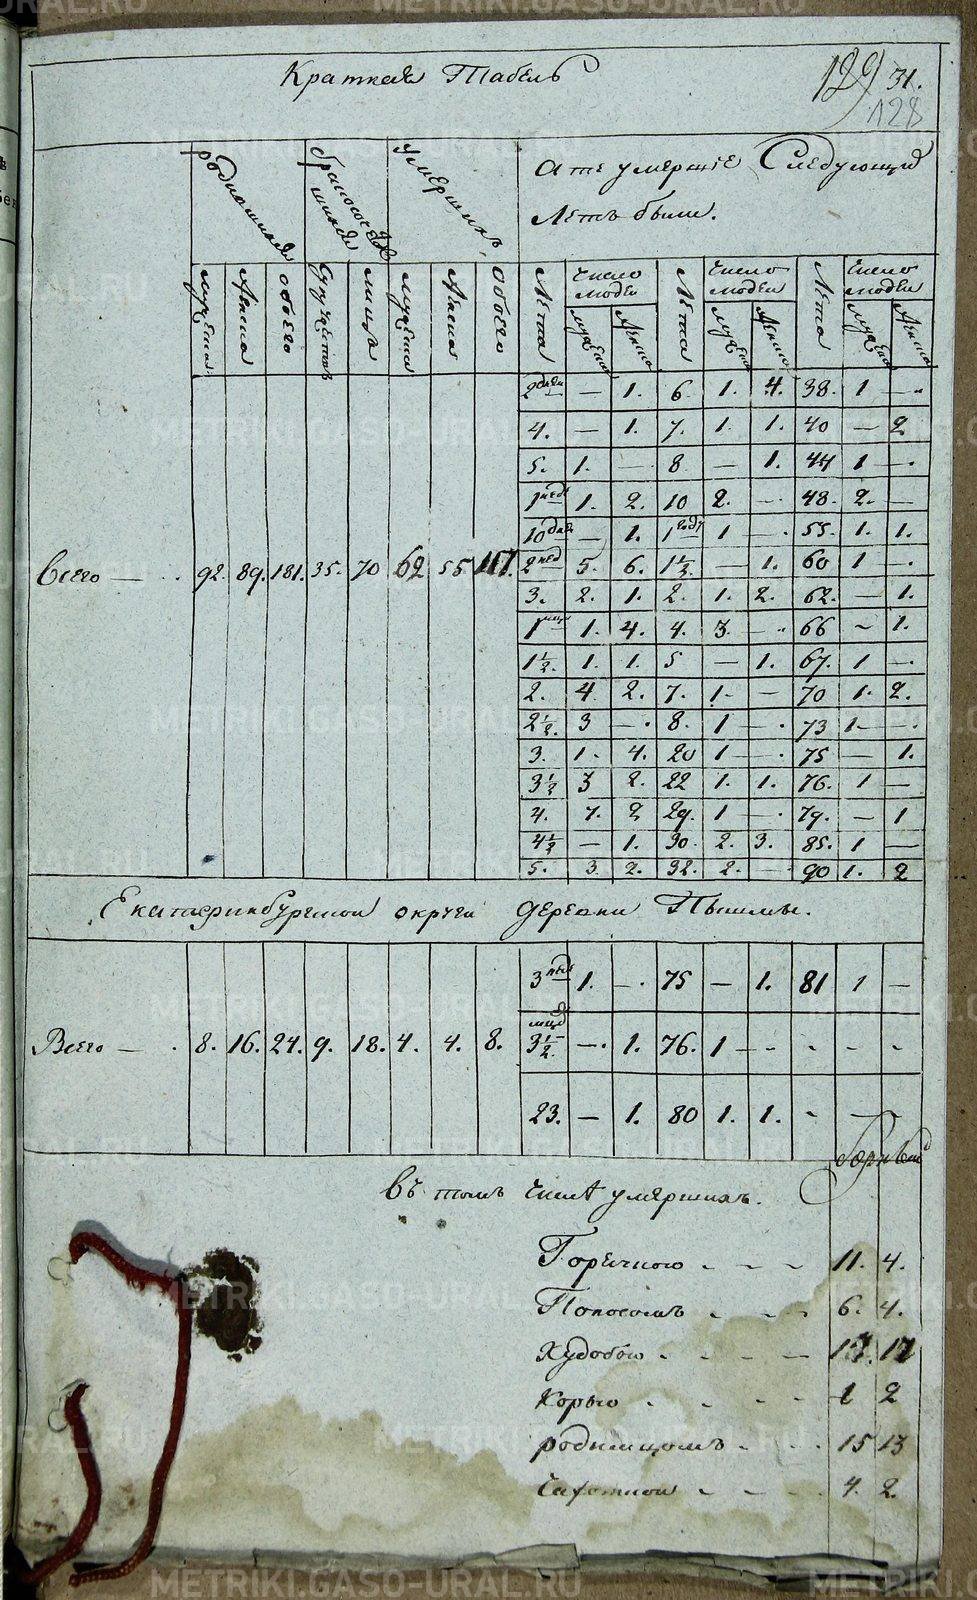 Краткая Табель
129 31.
128
родившихся
бракосочетавшихся
умершихъ
А те умершіе Следующихъ
Летъ были.
мужеска женска обоего супружествъ лицъ мужеска женска обоего Лета число людей Лета число людей Лета число людей
мужеска женска мужеска женска мужеска женска
2 дней — 1. 6 1. 4. 38. 1 —
4. — 1. 7. 1. 1. 40 — 2
5. 1. — 8 — 1. 44 1 —
1 нед 1. 2. 10 2. — 48. 2. —
10 дней — 1. 1 году 1 — 55. 1. 1.
Всего — 92. 89. 181. 35. 70 62 55 117. 2 нед 5. 6. 1½ — 1. 60 1 —
3. 2. 1. 2. 1. 2. 62. — 1.
1 мцъ 1. 4. 4. 3. — 66 — 1.
1½. 1. 1. 5 — 1. 67. 1 —
2. 4 2. 7. 1. — 70 1. 2.
2½. 3 — 8. 1 — 73 1. —
3. 1. 4. 20 1 — 75 — 1.
3½ 3 2. 22 1. 1. 76. 1 —
4. 7. 2 29. 1 — 79. — 1
4½ — 1. 30. 2. 3. 85. 1 —
5. 3. 2. 32. 2. — 90 1. 2
Екатеринбургской округи деревни Пышмы.
3 нед 1. — 75 — 1. 81 1 —
Всего — 8. 16. 24. 9. 18. 4. 4. 8. мцъ 3½. — 1. 76. 1 — - - -
23. — 1. 80 1. 1. - —
въ томъ числе умершихъ.
Горячкою 11. 4.
Поносомъ 6. 4.
Худобою 17. 17
Корью 1 2
родимцомъ 15 13
Чахоткой 4. 2.
METRIKI.GASO-URAL.RU